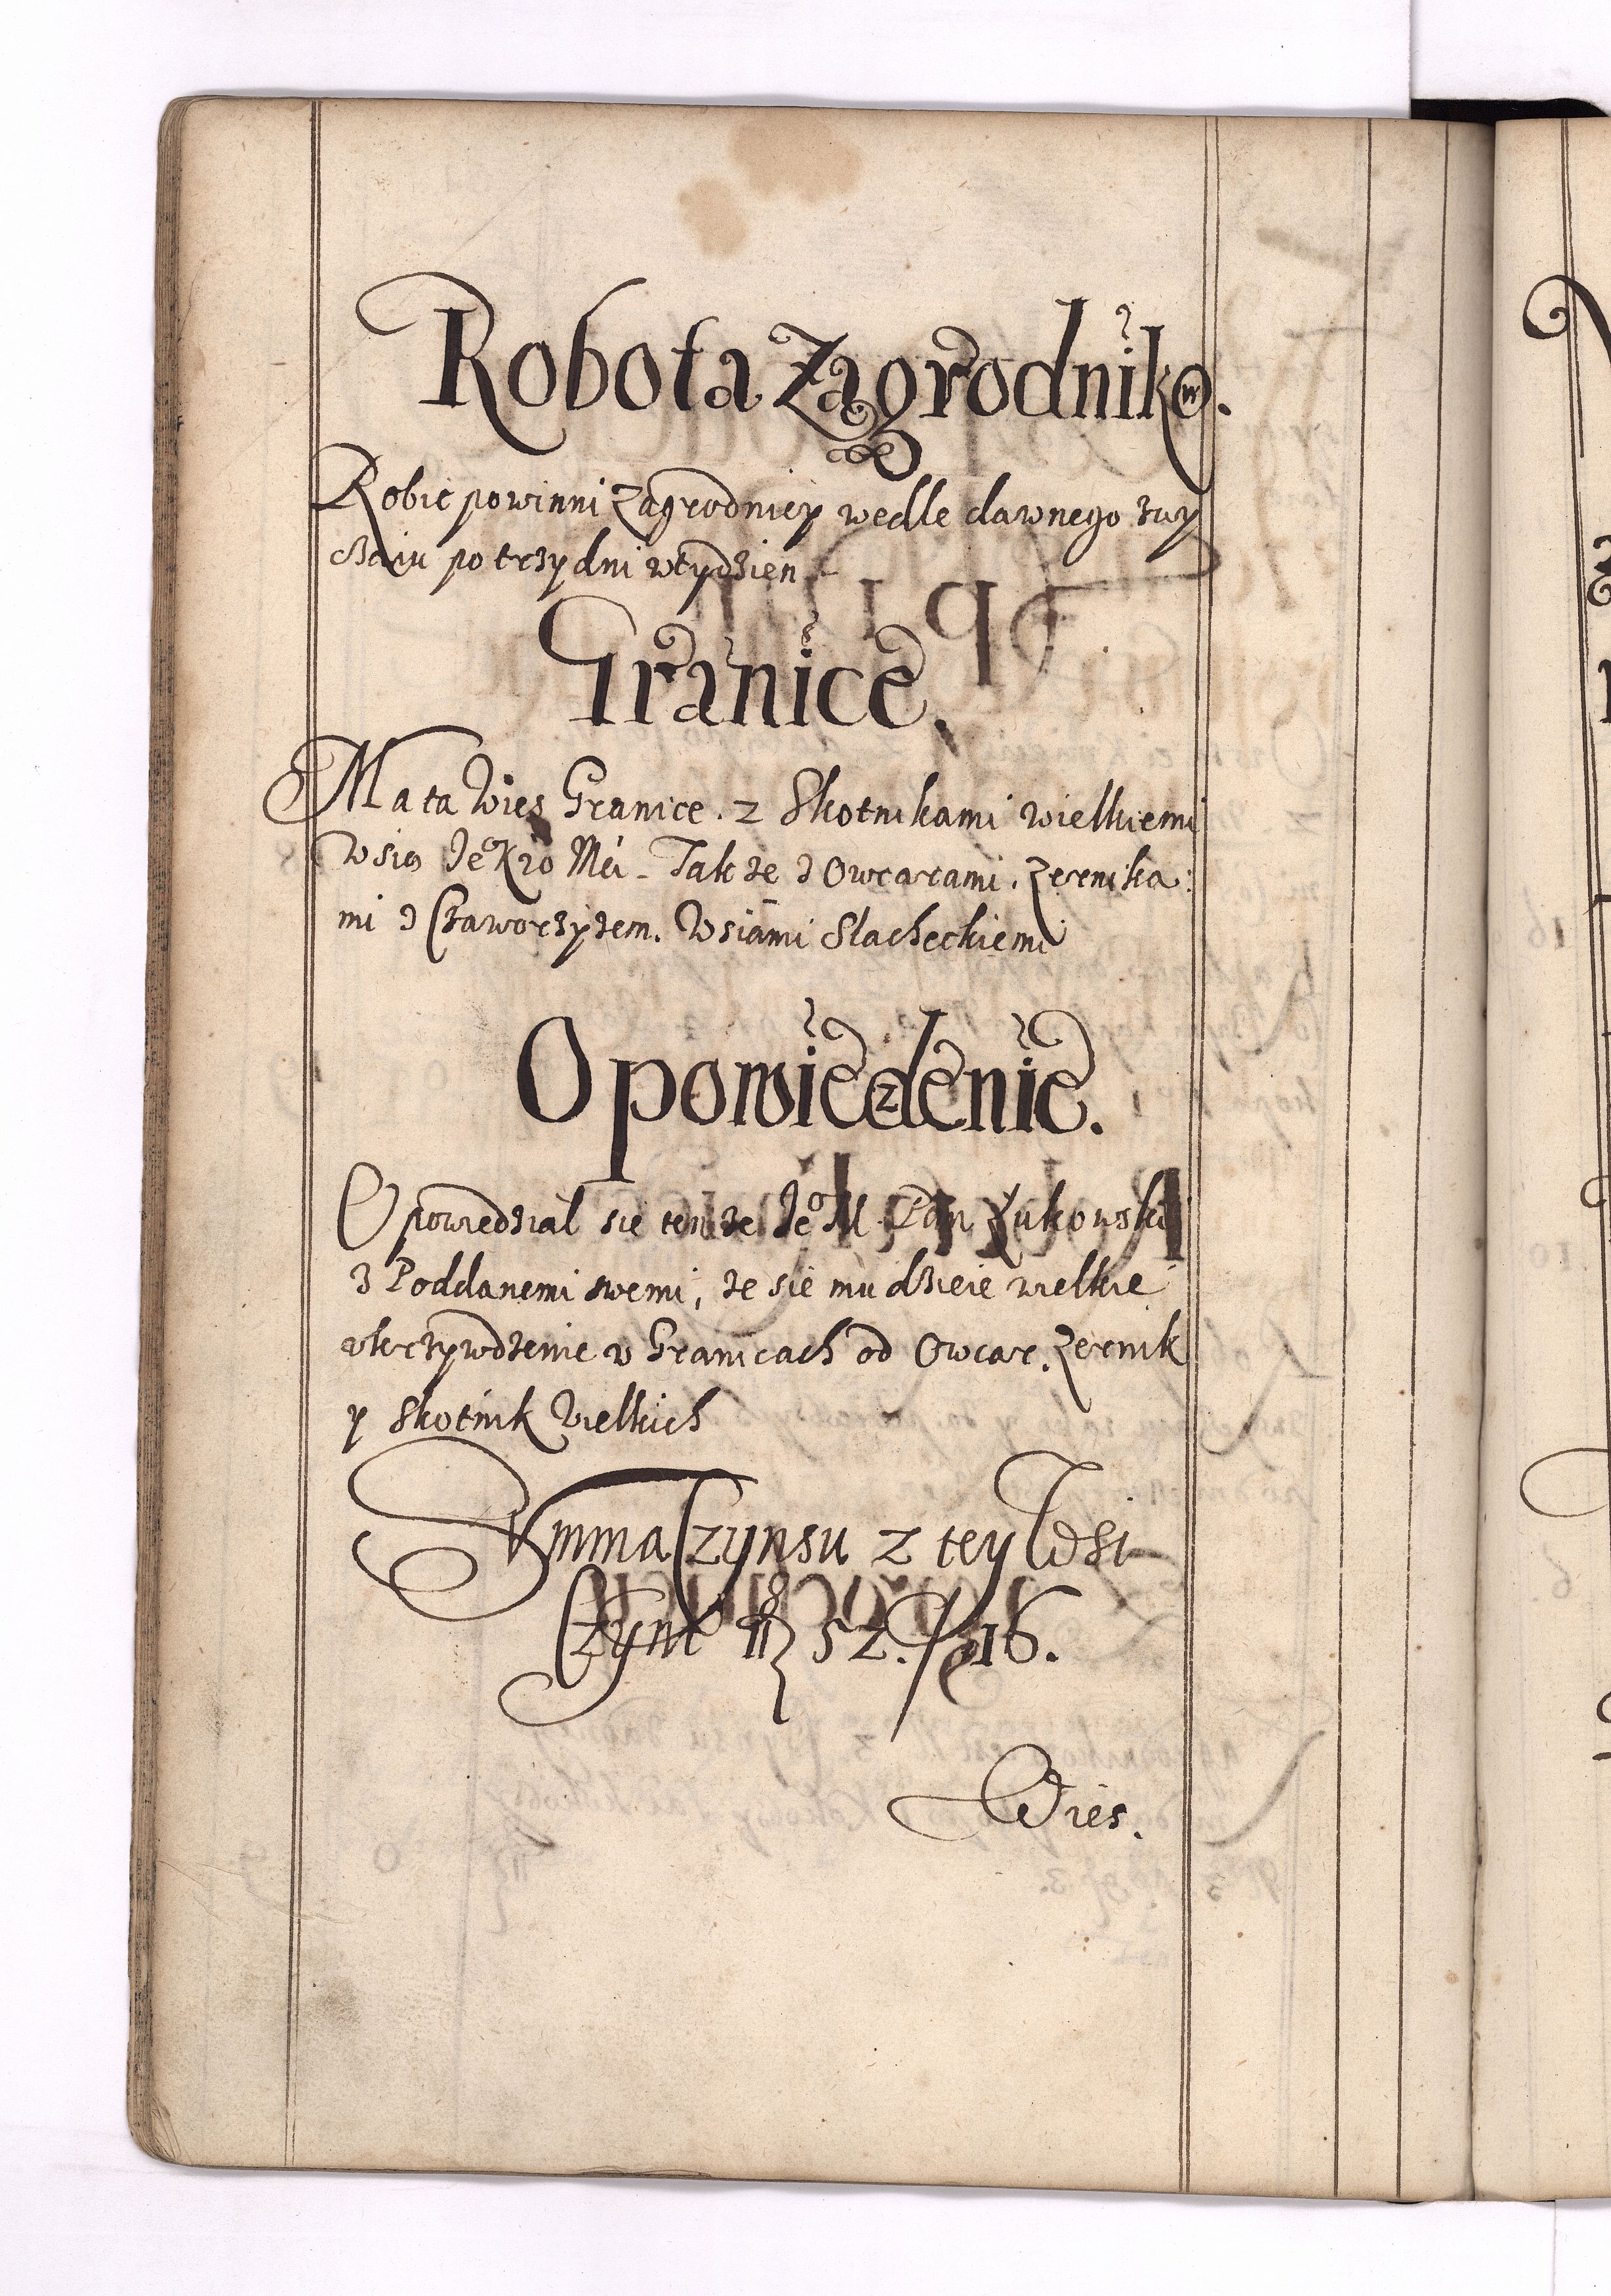 Robota Zagrodnikow.
Robić powinni Zagrodnicy wedle dawnego zwy
czaiu po trzy dni w tydzien
Granice.
Ma ta Wies Granice. z Skotnikami wielkiemi
wsią Je° Kro Mci - Takze z Owcarami. Zernika:
mi z Czaworzyzem. Wsiami Slacheckiemi
Opowiedzenie.
Opowiedzial sie tenze Je° M. Pan Zukowski
z Poddanemi swemi, ze sie mu dzieie wielkie
vkrzywdzenie w Granicach od Owcar. Zernik
y Skotnik Wielkich
Summa Czynsu z tey Wsi
Czyni 52. 16.
Wies.